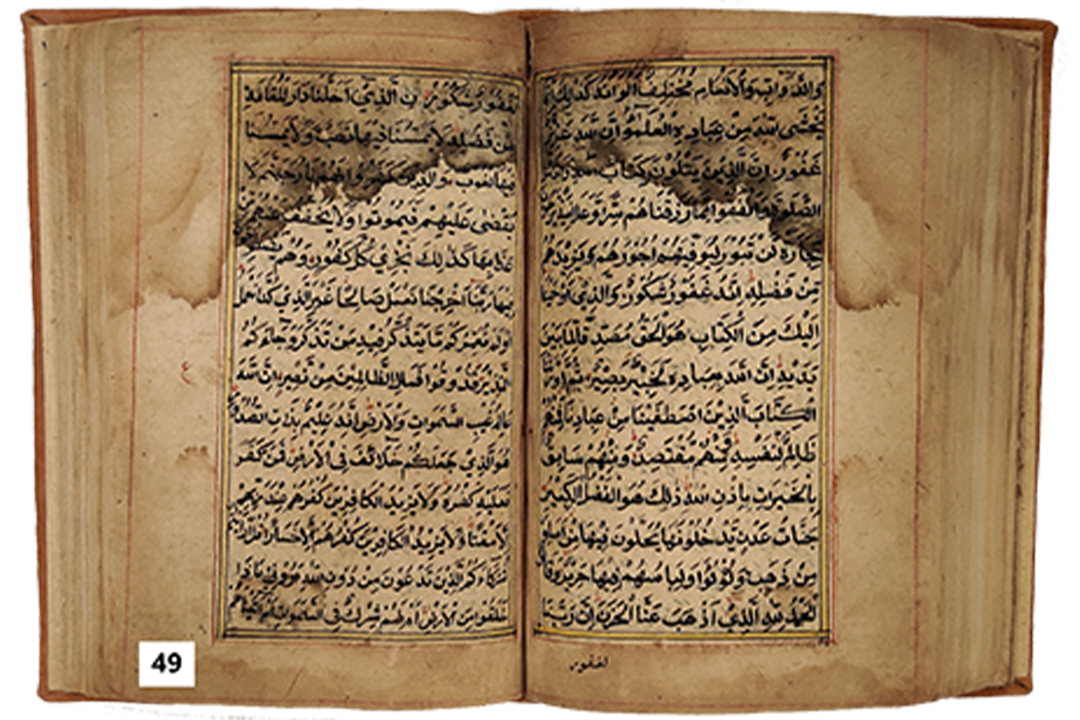 والدواب والانعام مختلف الوانه كذلك انما
يخشى الله من عباده العلمؤا ان الله عزيز
غفور ان الذين يتلون كتاب الله
الصلوة وانفقوا مما رزقناهم سرا وعلانية يرجون
تجارة لن تبور ليوفيهم اجورهم ويزيدهم
من فضله انه غفور شكور والذي اوحينا
اليك من الكتاب هو الحق مصدقا لما بين
يديه ان الله بعباده لخبير بصير ثم اورثنا
الكتاب الذين اصطفينا من عبادنا فمنهم
ظالم لنفسه فمنهم مقتصد ومنهم سابق
بالخيرات باذن الله ذلك هو الفضل الكبير
جنات عدن يدخلونها يحلون فيها من اساور
من ذهب ولؤلؤا ولباسهم فيها حرير وقالوا
الحمد لله الذي اذهب عنا الحزن ان ربنا
لغفور
لغفور شكور ن الذي احلنا دار المقامة
من فضله لا يمسنا فيها نصب ولا يمسنا
فيها لغوب والذين كفروا لهم نار جهنم لا
يقضى عليهم فيموتوا ولا يخفف عنهم من
عذابها كذلك نجزي كل كفور وهم يصطرخون
فيها ربنا اخرجنا نعمل صالحا غير الذي كنا نعمل
اولم نعمركم ما يتذكر فيه من تذكر وجاءكم
النذير فذوقوا فما للظالمين من نصير ان الله
عالم غيب السموات والارض انه عليم بذات الصدور
هو الذي جعلكم خلائف في الارض فمن كفر
فعليه كفره ولا يزيد الكافرين كفرهم عند ربهم
الا مقتا ولا يزيد الكافرين كفرهم الا خسارا قل ارايتم
شركاءكم الذين تدعون من دون الله اروني ماذا
خلقوا من الارض ام لهم شرك في السموات ام اتيناهم
49